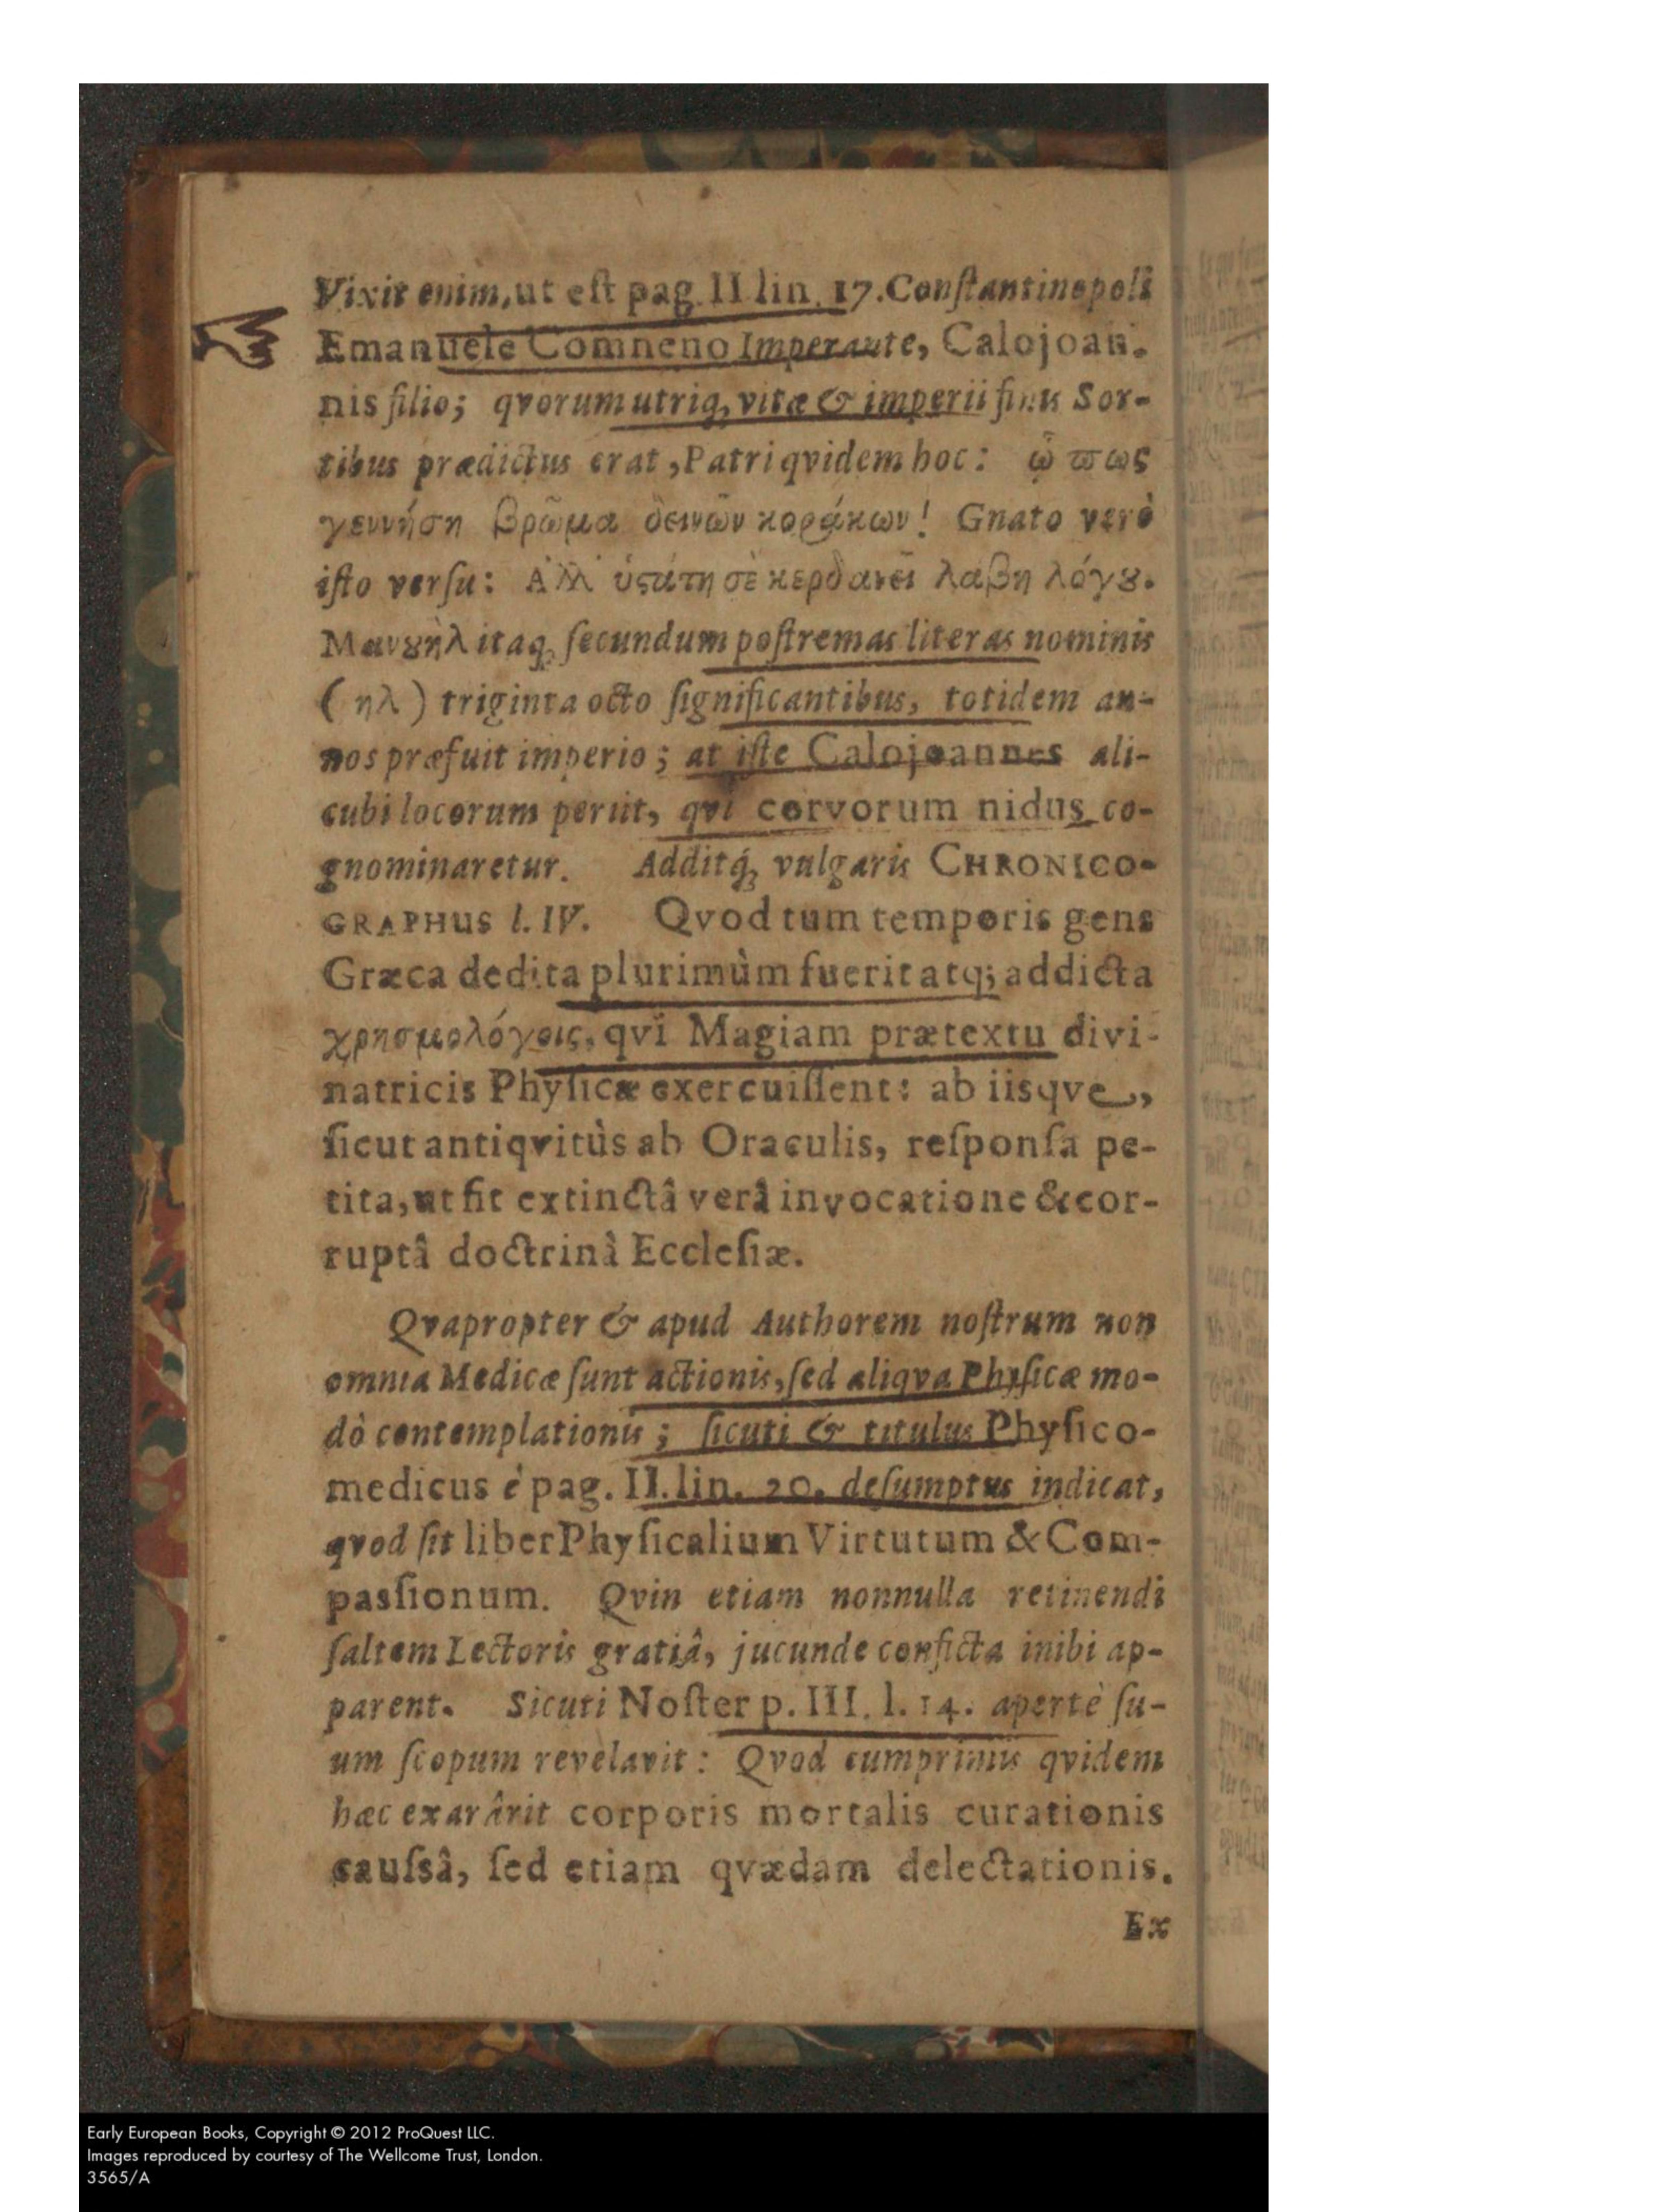 Vixit enim, ut eſt pag. II lin. 17. Conſtantinopoli
Emanuele Comneno Imperante, Calojoan-
nis filio; qvorum utriq, vitæ & imperii finis Sor-
tibus prædictus erat, Patri qvidem hoc: ᾧ πως
γεννήση βρῶμα δεινῶν κοράκων! Gnato verò
iſto verſu: Ἀλλ' ὑϛάτη σὲ κερδανεῖ λαβὴ λόγȣ.
Μανȣὴλ itaq, ſecundum poſtremas literas nominis
(ηλ) triginta octo ſignificantibus, totidem an-
nos præfuit imperio; at iſte Calojoannes ali-
cubi locorum periit, qvi corvorum nidus co-
gnominaretur. Additq́, vulgaris CHRONICO-
GRAPHUS l. IV. Qvod tum temporis gens
Græca dedita plurimùm fuerit atq; addicta
χρησμολόγοις, qvi Magiam prætextu divi-
natricis Phyſicæ exercuiſſent: ab iisqve,
ſicut antiqvitùs ab Oraculis, reſponſa pe-
tita, ut fit extinctâ verâ invocatione & cor-
ruptâ doctrinâ Eccleſiæ.
Qvapropter & apud Authorem noſtrum non
omnia Medicæ ſunt actionis, ſed aliqva Phyſicæ mo-
dò contemplationis; ſicuti & titulus Phyſico-
medicus è pag. II. lin. 20. deſumptus indicat,
qvod ſit liber Phyſicalium Virtutum & Com-
pasſionum. Qvin etiam nonnulla retinendi
ſaltem Lectoris gratiâ, jucunde conficta inibi ap-
parent. Sicuti Noſter p. III. l. 14. apertè ſu-
um ſcopum revelavit: Qvod cumprimis qvidem
hæc exarârit corporis mortalis curationis
cauſsâ, ſed etiam qvædam delectationis.
Ex
Early European Books, Copyright © 2012 ProQuest LLC.
Images reproduced by courtesy of The Wellcome Trust, London.
3565/A